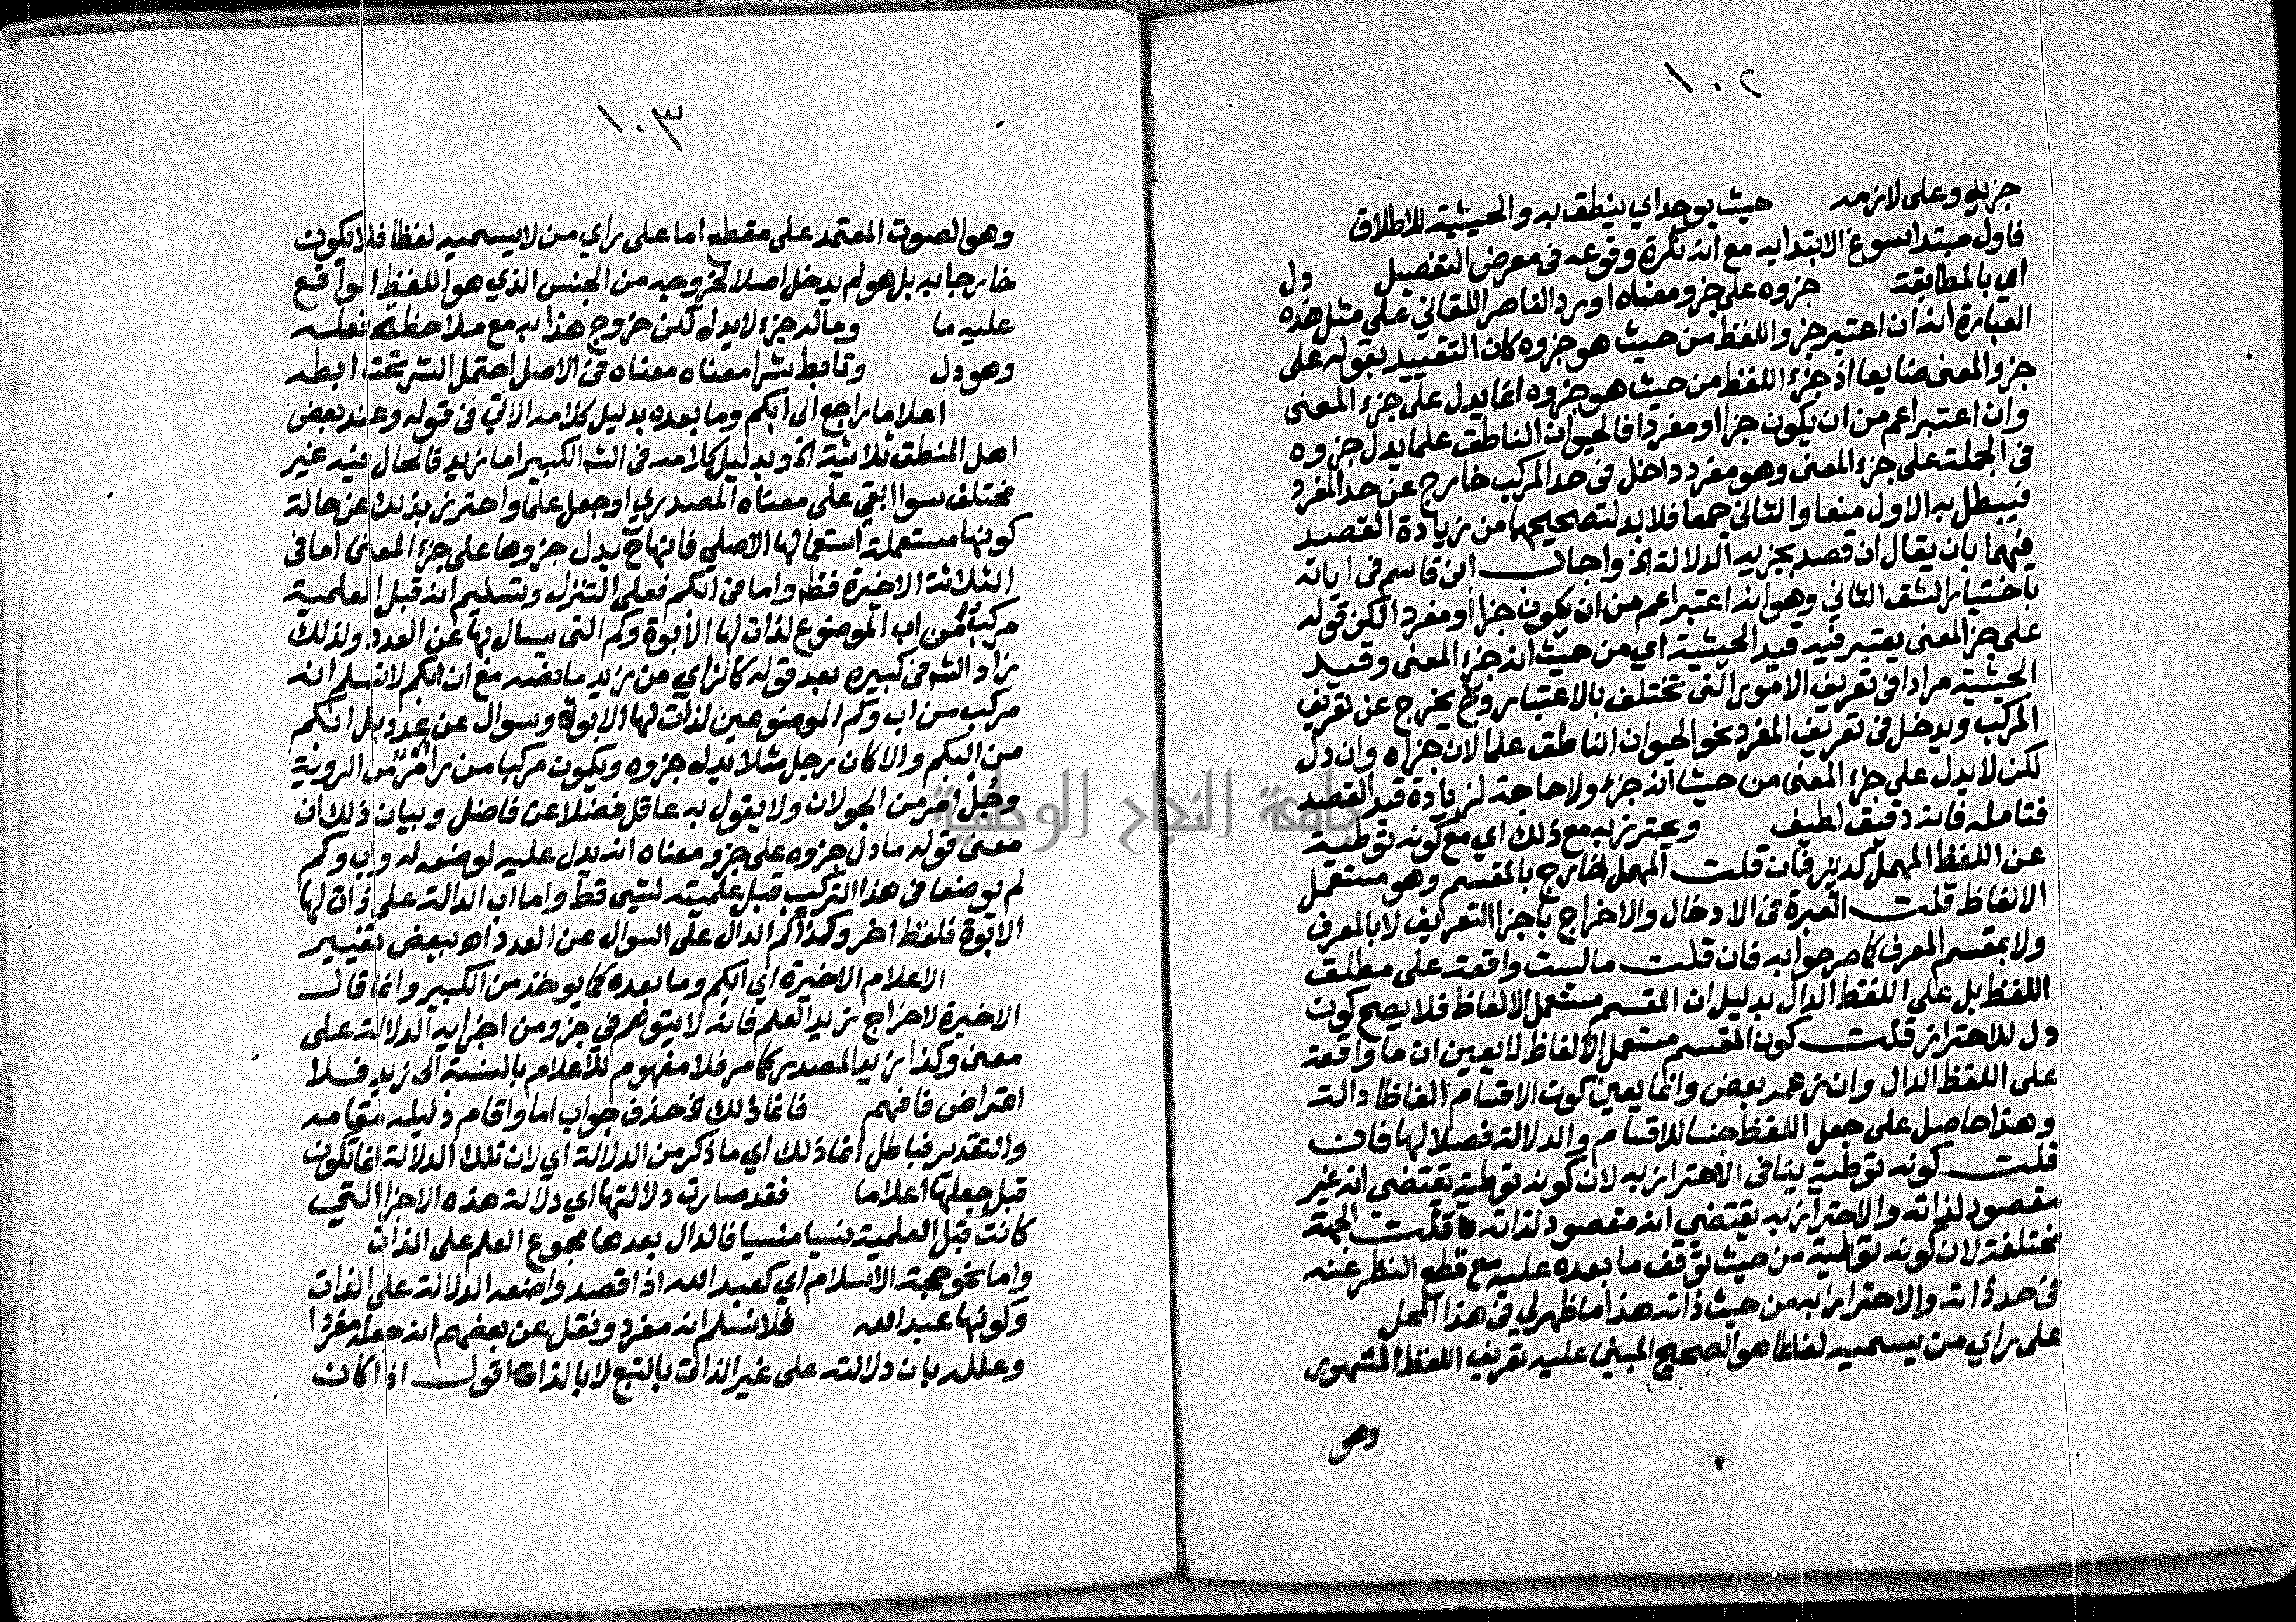 ١٠٢
جزيه وعلى لازمه حيث يوجد اي ينطق به والحيثية للاطلاق
فاول مبتدا سوغ الابتدا به مع انه نكرة وقوعه في معرض التفصيل دل
اي بالمطابقة جزوه على جزو معناه اورد الناصر اللقاني على مثل هذه
العبارة انه ان اعتبر جزو اللفظ من حيث هو جزوه كان التقييد بقوله على
جزو المعنى ضايعا اذ جزء اللفظ من حيث هو جزوه انما يدل على جزء المعنى
وان اعتبر اعم من ان يكون جزا او مفردا فالحيوان الناطق علما يدل جزوه
في الجملة على جزء المعنى وهو مفرد داخل في حد المركب خارج عن حد المفرد
فيبطل به الاول منعا والثاني جمعا فلا بد لتصحيحها من زيادة القصد
فيهما بان يقال ان قصد بجزيه الدلالة الخ واجاب ابن قاسم في اياته
باختيار الشق الثاني وهو انه اعتبر اعم من ان يكون جزا او مفردا لكن قوله
على جز المعنى يعتبر فيه قيد الحيثية اي من حيث انه جزء المعنى وقيد
الحيثية مراد في تعريف الامور التي تختلف بالاعتبار وح يخرج عن تعريف
المركب ويدخل في تعريف المفرد نحو الحيوان الناطق علما لان جزاه وان دل
لكن لا يدل على جزء المعنى من حيث انه جزء ولا حاجة لزيادة قيد القصد
فتامله فانه دقيق لطيف ويحترز به مع ذلك اي مع كونه توطية
عن اللفظ المهمل كديز فان قلت المهمل خارج بالمقسم وهو مستعمل
الالفاظ قلت العبرة في الادخال والاخراج باجزا التعريف لا بالمعرف
ولا بمقسم المعرف كما مر جوابه فان قلت ما ليست واقعة على مطلق
اللفظ بل على اللفظ الدال بدليل ان المقسم مستعمل الالفاظ فلا يصح كون
دل للاحتراز قلت كون المقسم مستعمل الالفاظ لا يعين ان ما واقعة
على اللفظ الدال وان زعمه بعض وانما يعين كون الاقسام الفاظا دالة
وهذا حاصل على جعل اللفظ جنسا للاقسام والدلالة فصلا لها فان
قلت كونه توطية ينافي الاحتراز به لان كونه توطية يقتضي انه غير
مقصود لذاته والاحتراز به يقتضي انه مقصود لذاته قلت الجهة
مختلفة لان كونه توطية من حيث توقف ما بعده عليه مع قطع النظر عنه
في حد ذاته والاحتراز به من حيث ذاته هذا ما ظهر لي في هذا المحل
على راي من يسميه لفظا هو الصحيح المبني عليه تعريف اللفظ المشهور
وهو
١٠٣
وهو الصوت المعتمد على مقطع اما على راي من لا يسميه لفظا فلا يكون
خارجا به بل هو لم يدخل اصلا لخروجه من الجنس الذي هو اللفظ الواقع
عليه ما وماله جزء لا يدل لكن خروج هذا به مع ملاحظة فعله
وهو دل وتابط شرا معناه في الاصل احتمل الشر تحت ابطه
اعلاما راجع الى ابكم وما بعده بدليل كلامه الاتي في قوله وعند بعض
اهل المنطق ثلاثية الخ وبدليل كلامه في الشه الكبير اما زيد فالحال فيه غير
مختلف سوا ابقي على معناه المصدري او جعل علما واحترز بذلك عن حالة
كونها مستعملة استعمالها الاصلي فانها ح يدل جزوها على جزء المعنى اما في
الثلاثة الاخيرة فظ واما في ابكم فعلى التنزل وتسليم انه قبل العلمية
مركب من اب الموضوع لذات لها الابوة وكم التي يسال بها عن العدد ولذلك
زاد الشه في كبيره بعد قوله كالزاي من زيد ما نصه مع ان ابكم لا نسلم انه
مركب من اب وكم الموضوعين لذات لها الابوة وسوال عن عدد بل ابكم
من البكم والا كان رجل مثلا يدل جزوه ويكون مركبا من را من الروية
وجل امر من الجولان ولا يقول به عاقل فضلا عن فاضل وبيان ذلك ان
معنى قوله ما دل جزوه على جزو معناه انه يدل عليه لوضعه له واب وكم
لم يوضعا في هذا التركيب قبل علميته لشي قط واما اب الدالة على ذات لها
الابوة فلفظ اخر وكذا كم الدال على السوال عن العدد اه ببعض تغيير
الاعلام الاخيرة اي ابكم وما بعده كما يوخذ من الكبير وانما قال
الاخيرة لاخراج زيد العلم فانه لا يتوهم في جزو من اجزايه الدلالة على
معنى وكذا زيد المصدر كما مر فلا مفهوم للاعلام بالنسبة الى زيد فلا
اعتراض فافهم فانما ذلك الخ حذف جواب اما واقام دليله مقامه
والتقدير فباطل انما ذلك اي ما ذكر من الدلالة اي لان تلك الدلالة انما تكون
قبل جعلها اعلاما فقد صارت دلالتها اي دلالة هذه الاجزا التي
كانت قبل العلمية نسيا منسيا فالدال بعدها مجموع العلم على الذات
واما نحو حجة الاسلام اي كعبد الله اذا قصد واضعه الدلالة على الذات
وكونها عبد الله فلا نسلم انه مفرد ونقل عن بعضهم انه جعله مفردا
وعلله بان دلالته على غير الذات بالتبع لا بالذات اقول اذا كان
جامعة النجاح الوطنية